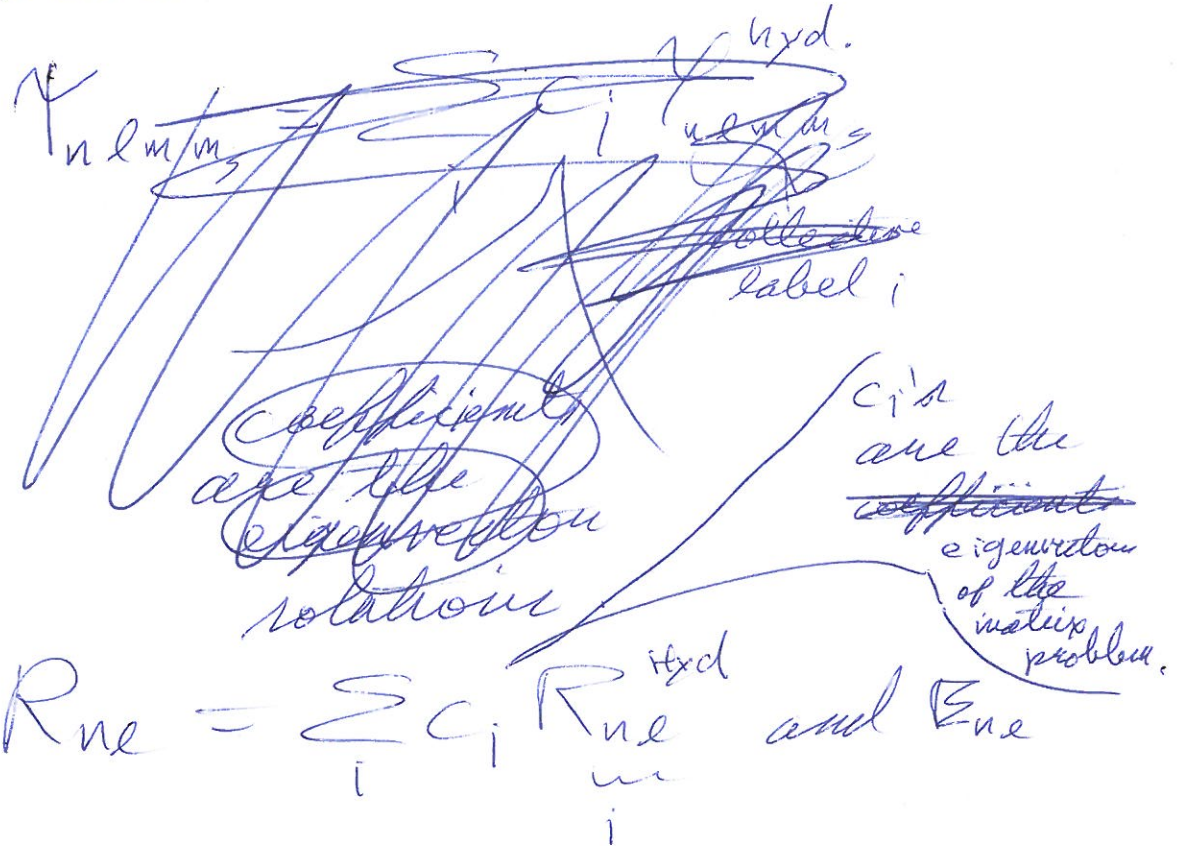 Ψ_{nlm m_s} = Σ_i c_i Ψ^{hyd.}_{nlm m_s}
collective
label i
coefficient
are the
eigenvector
solations
c_i's
are the
coefficients
eigenvectors
of the
matrix
problem.
R_{nl} = Σ_i c_i R_{nl}^{Hyd} and E_{nl}
i